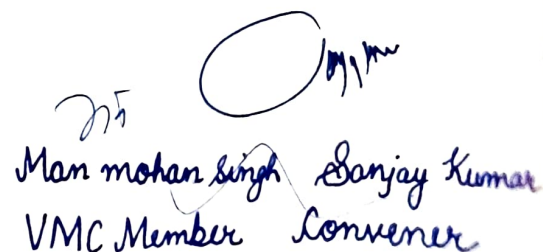 Man mohan Singh Sanjay Kumar
VMC Member Convener